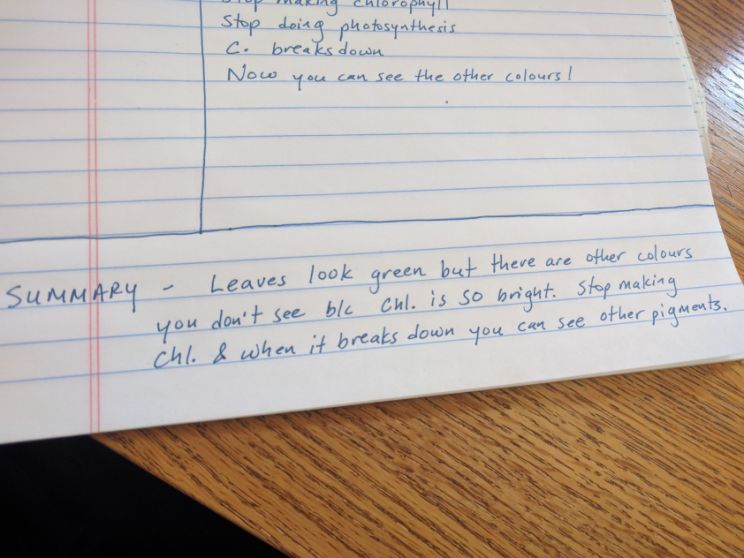 Stop making chlorophyll
Stop doing photosynthesis
C. breaks down
Now you can see the other colours!
SUMMARY - Leaves look green but there are other colours
you don't see b/c Chl. is so bright. Stop making
Chl. & when it breaks down you can see other pigments.